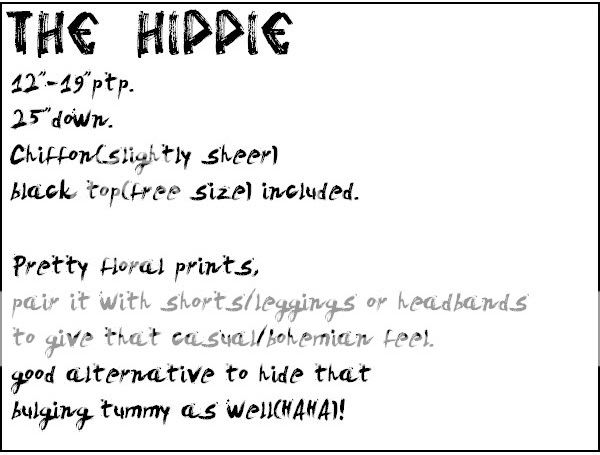 THE HIPPIE
12"-19"ptp.
25"down.
Chiffon(slightly sheer)
black top(free size) included.
Pretty floral prints,
pair it with shorts/leggings or headbands
to give that casual/bohemian feel.
good alternative to hide that
bulging tummy as well(HAHA)!